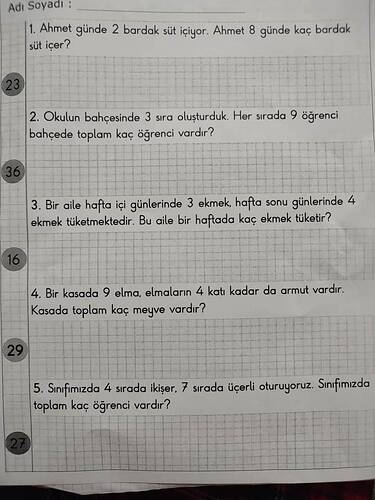 Adı Soyadı :
1. Ahmet günde 2 bardak süt içiyor. Ahmet 8 günde kaç bardak
süt içer?
23
2. Okulun bahçesinde 3 sıra oluşturduk. Her sırada 9 öğrenci
bahçede toplam kaç öğrenci vardır?
36
3. Bir aile hafta içi günlerinde 3 ekmek, hafta sonu günlerinde 4
ekmek tüketmektedir. Bu aile bir haftada kaç ekmek tüketir?
16
4. Bir kasada 9 elma, elmaların 4 katı kadar da armut vardır.
Kasada toplam kaç meyve vardır?
29
5. Sınıfımızda 4 sırada ikişer, 7 sırada üçerli oturuyoruz. Sınıfımızda
toplam kaç öğrenci vardır?
27